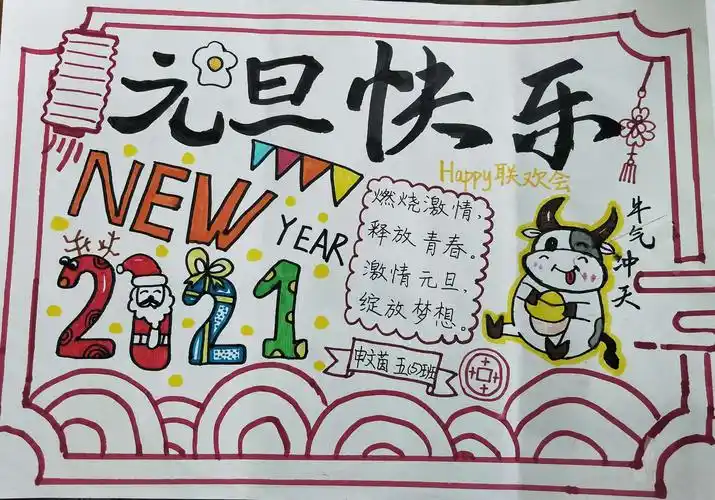 元旦快乐
Happy联欢会
NEW
YEAR
2021
燃烧激情，
释放青春。
激情元旦，
绽放梦想。
牛气冲天
申文茵 五(5)班